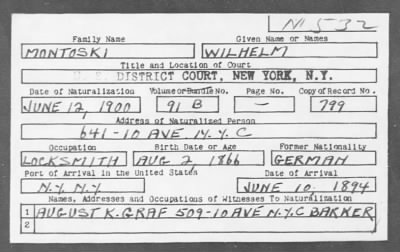 N 532
Family Name Given Name or Names
MONTOSKI WILHELM
Title and Location of Court
U. S. DISTRICT COURT, NEW YORK, N.Y.
Date of Naturalization Volume or Bundle No. Page No. Copy of Record No.
JUNE 12, 1900 91 B — 799
Address of Naturalized Person
641-10 AVE. N.Y.C
Occupation Birth Date or Age Former Nationality
LOCKSMITH AUG 2, 1866 GERMAN
Port of Arrival in the United States Date of Arrival
N.Y. N.Y JUNE 10, 1894
Names, Addresses and Occupations of Witnesses To Naturalization
1 AUGUST K. GRAF 509-10 AVE N.Y.C BARKER
2